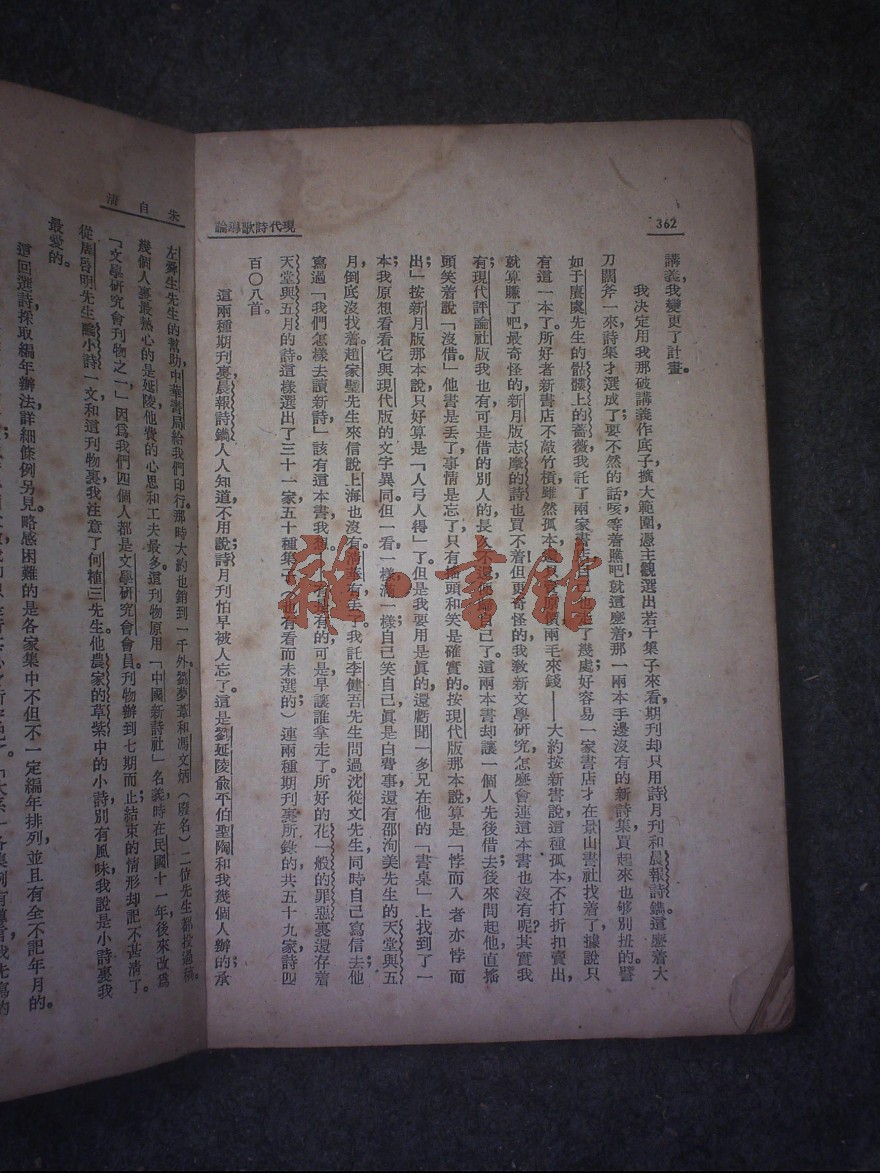 362
現代詩歌導論
講義我變更了計畫。
我決定用我那破講義作底子,擴大範圍,憑主觀選出若干集子來看,期刊却只用詩月刊和晨報詩鐫。這麼着大
刀闊斧一來,詩集才選成了;要不然的話,咳,等着瞧吧!就這麼着,那一兩本手邊沒有的新詩集,買起來也够別扭的。譬
如于賡虞先生的骷髏上的薔薇,我託了兩家書店,自己也走了幾處;好容易一家書店才在景山書社找着了,據說只
有這一本了。所好者新書店不敲竹槓,雖然孤本,還只要原價兩毛來錢——大約按新書說,這種孤本不打折扣賣出,
就算賺了吧。最奇怪的,新月版志摩的詩也買不着!但更奇怪的,我教新文學研究,怎麼會連這本書也沒有呢?其實我
有;現代評論社版我也有,可是借的別人的,長久不還,
這兩本書却讓一個人先後借去;後來問起他,直搔
頭笑着說「沒借。」他書是丟了,事情是忘了,只有搔頭和笑是確實的。按現代版那本說,算是「悖而入者亦悖而
出;」按新月版那本說,只好算是「人弓人得」了。但是我要用是眞的,還虧聞一多兄在他的「書桌」上找到了一
本;我原想看看它與現代版的文字異同。但一看一樣,滿一樣,自己笑自己,眞是白費事,還有邵洵美先生的天堂與五
月,倒底沒找着。趙家璧先生來信說上海也沒有。
我託李健吾先生問過沈從文先生,同時自己寫信去;他
寫過「我們怎樣去讀新詩」該有這本書,我想。
有的,可是早讓誰拿走了。所好的花一般的罪惡裏還存着
天堂與五月的詩。這樣選出了三十一家,五十種集子(也有看而未選的);連兩種期刊裏所錄的,共五十九家,詩四
百〇八首。
這兩種期刊裏,晨報詩鐫人人知道,不用說;詩月刊怕早被人忘了。這是劉延陵俞平伯聖陶和我幾個人辦的;承
朱自清
左舜生先生的幫助,中華書局給我們印行。那時大約也銷到一千外。劉夢葦和馮文炳(廢名)二位先生都投過稿。
幾個人裏最熱心的是延陵,他費的心思和工夫最多。這刊物原用「中國新詩社」名義,時在民國十一年,後來改爲
「文學研究會刊物之一,」因爲我們四個人都是文學研究會會員。刊物辦到七期而止;結束的情形却記不甚清了。
從周啓明先生論小詩一文和這刊物裏,我注意了何植三先生。他農家的草紫中的小詩別有風味,我說是小詩裏我
最愛的。
這回選詩,採取編年辦法,詳細條例另見。略感困難的是各家集中不但不一定編年排列,並且有全不記年月的。